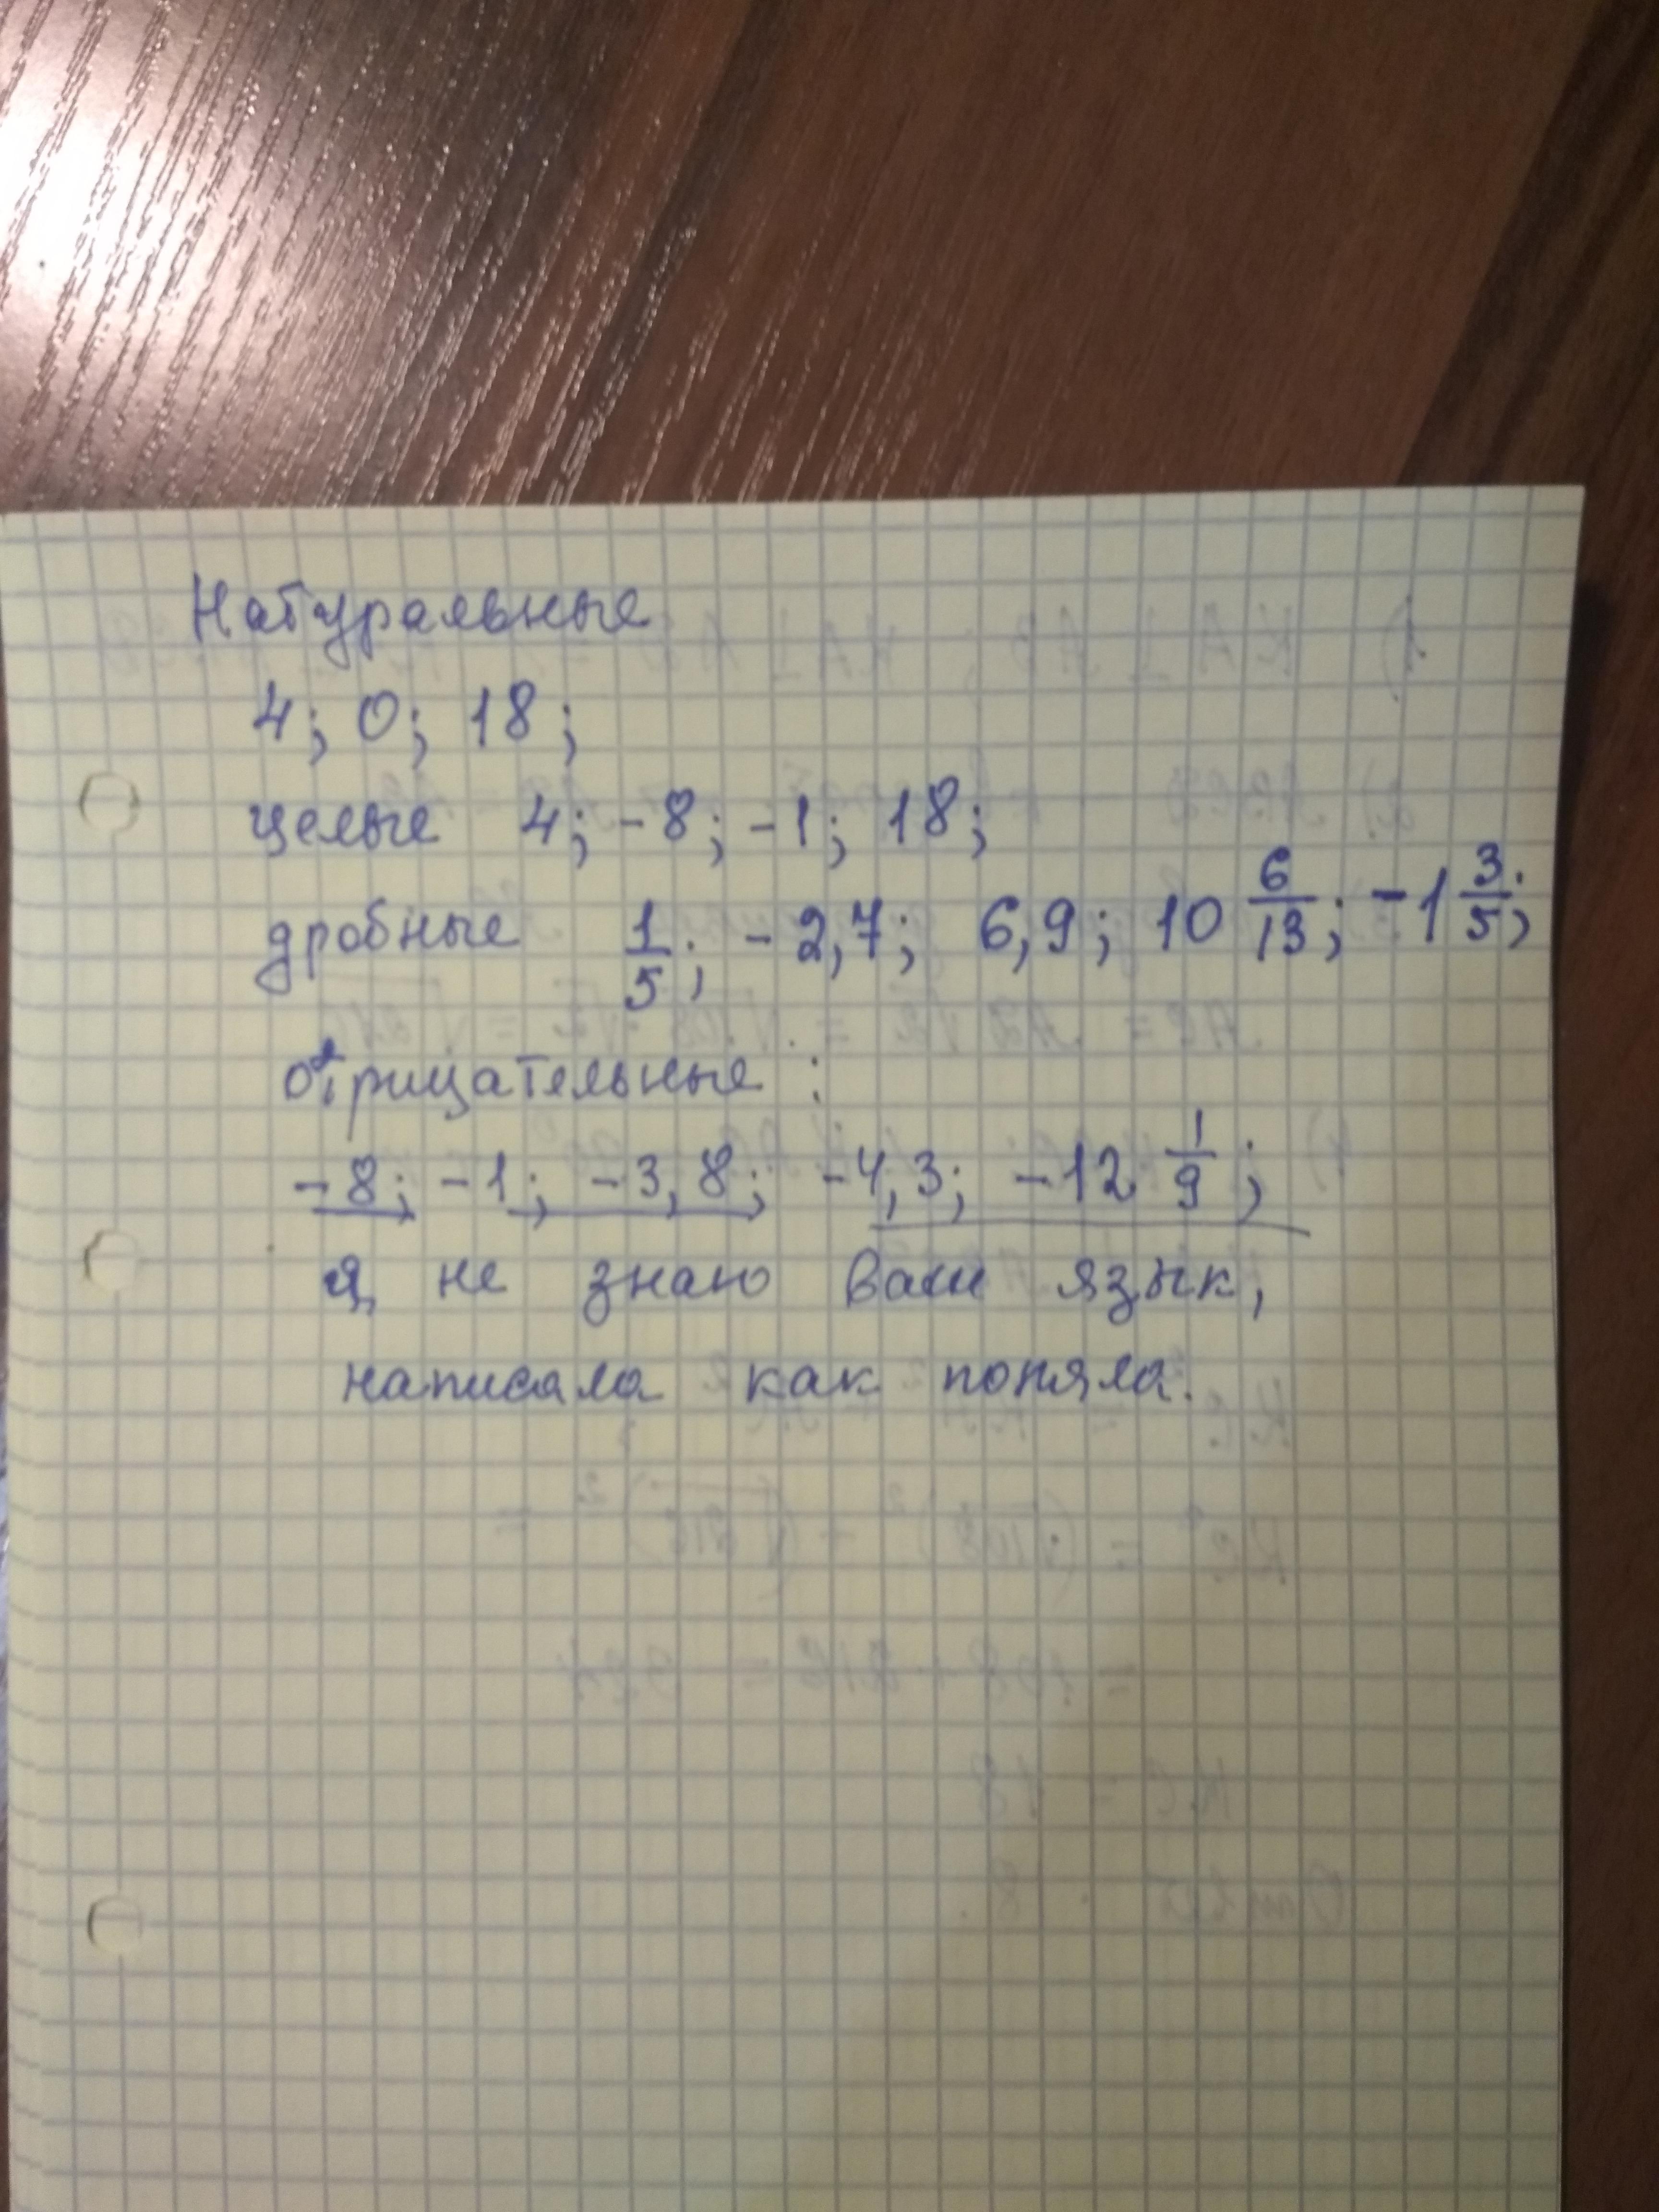 Натуральные
4; 0; 18;
целые 4; -8; -1; 18;
дробные 1/5; -2,7; 6,9; 10 6/13; -1 3/5;
отрицательные :
-8; -1; -3,8; -4,3; -12 1/9;
я не знаю ваш язык,
написала как поняла.